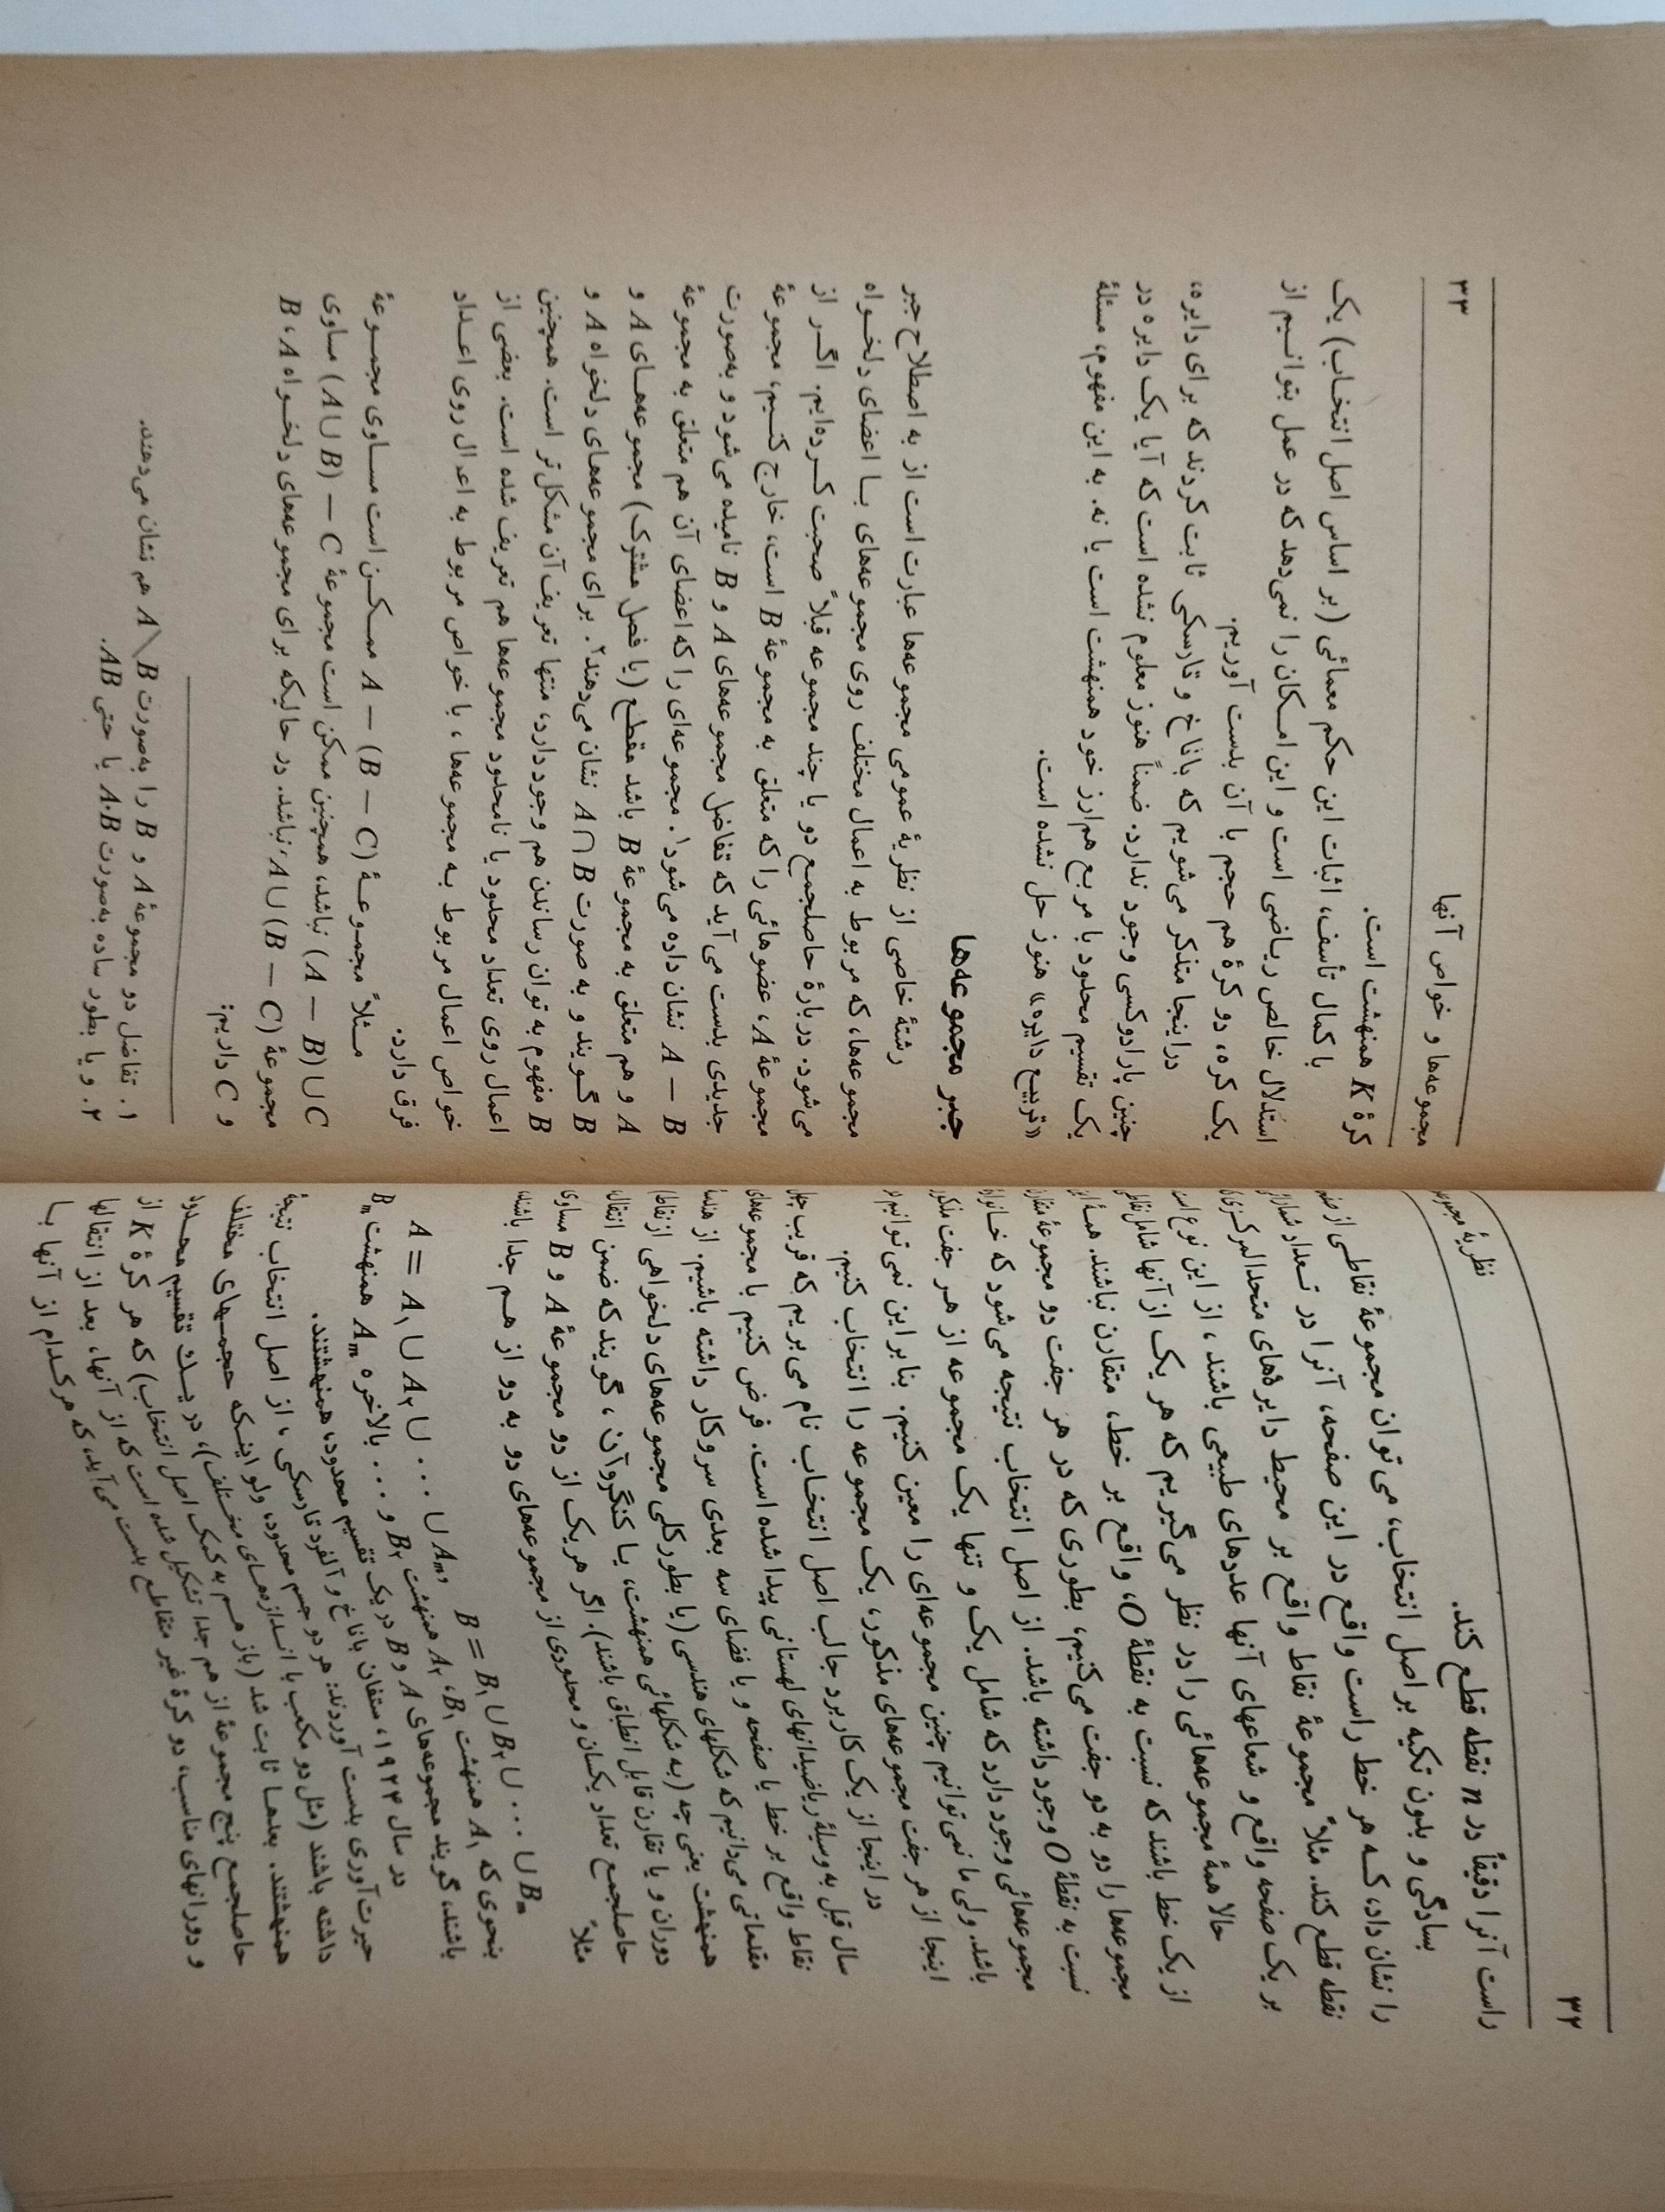 ۳۲
نظریهٔ
راست آنرا دقیقاً در n نقطه قطع کند.
بسادگی و بدون تکیه بر اصل انتخاب، می‌توان مجموعهٔ نقاطی از
را نشان داد، کــه هر خط راست واقع در این صفحه، آنرا در تــعداد
نقطه قطع کند. مثلاً مجموعهٔ نقاط واقع بر محیط دایره‌های متحدالمرکــزی
بر یک صفحه واقع و شعاعهای آنها عددهای طبیعی باشند، از این نوع است
حالا همهٔ مجموعه‌هائی را در نظر می‌گیریم که هر یک از آنها شامل
از یک خط باشند که نسبت به نقطهٔ O، واقع بر خط، متقارن نباشند. همهٔ این
مجموعه‌ها را دو به دو جفت می‌کنیم، بطوری که در هر جفت دو مجموعهٔ
نسبت به نقطهٔ O وجود داشته باشد. از اصل انتخاب نتیجه می‌شود که
مجموعه‌هائی وجود دارد که شامل یک و تنها یک مجموعه از هــر جفت
باشد. ولی ما نمی‌توانیم چنین مجموعه‌ای را معین کنیم. بنابراین نمی‌توانیم در
اینجا از هر جفت مجموعه‌های مذکور، یک مجموعه را انتخاب کنیم.
در اینجا از یک کاربرد جالب اصل انتخــاب نام می‌بریم که قریب چهل
سال قبل به وسیلهٔ ریاضیدانهای لهستانی پیدا شده است. فرض کنیم با مجموعه‌های
نقاط واقع بر خط یا صفحه و یا فضای سه بعدی سروکار داشته باشیم. از هندسهٔ
مقدماتی می‌دانیم که شکلهای هندسی (یا بطور کلی مجموعه‌های دلخواهی از نقاط)
همنهشت یعنی چه (به شکلهائی همنهشت، یــا کنگروآن، گویند که ضمن انتقال،
دوران و یا تقارن قابل انطباق باشند). اگر هر یک از دو مجموعهٔ A و B مساوی
حاصلجمع تعداد یکسان و محدودی از مجموعه‌های دو به دو از هــم جدا باشند،
مثلاً
A = A₁ ∪ A₂ ∪ ... ∪ Aₘ، B = B₁ ∪ B₂ ∪ ... ∪ Bₙ
بنحوی که A₁ همنهشت B₁، A₂ همنهشت B₂ و ... بالاخره Aₘ همنهشت Bₙ
باشند، گویند مجموعه‌های A و B در یک تقسیم محدود، همنهشتند.
در سال ۱۹۲۴، ستفان باناخ و آلفرد تارسکی، از اصل انتخاب نتیجهٔ
حیرت‌آوری بدست آوردند: هر دو جسم محدود، ولو اینــکه حجمــهای مختلف
داشته باشند (مثل دو مکعب با انــدازه‌هــای مختلف)، در یــک تقسیم محــدود
همنهشتند. بعدهــا ثابت شد (باز هــم به کمک اصل انتخاب) که هر کرهٔ K از
حاصلجمع پنج مجموعهٔ از هم جدا تشکیل شده است که از آنها، بعد از انتقالها
و دورانهای مناسب، دو کرهٔ غیر متقاطع بدست می‌آید، که هر کــدام از آنها بــا
مجموعه‌ها و خواص آنها
۳۳
کرهٔ K همنهشت است.
با کمال تأسف، اثبات این حکم معمائی (بر اساس اصل انتخــاب) یک
استدلال خالص ریاضی است و این امــکان را نمی‌دهد که در عمل بتوانــیم از
یک کره، دو کرهٔ هم حجم با آن بدست آوریم.
در اینجا متذکر می‌شویم که باناخ و تارسکی ثابت کردند که برای دایره،
چنین پارادوکسی وجود ندارد. ضمناً هنوز معلوم نشده است که آیا یک دایره در
یک تقسیم محدود با مربع هم‌ارز خود همنهشت است یا نه. به این مفهوم، مسئلهٔ
«تربیع دایره» هنوز حل نشده است.
جبر مجموعه‌ها
رشتهٔ خاصی از نظریهٔ عمومی مجموعه‌ها عبارت است از به اصطلاح جبر
مجموعه‌ها، که مربوط به اعمال مختلف روی مجموعه‌های بــا اعضای دلخــواه
می‌شود. دربارهٔ حاصلجمع دو یا چند مجموعه قبلاً صحبت کــرده‌ایم. اگــر از
مجموعهٔ A، عضوهائی را که متعلق به مجموعهٔ B است، خارج کنــیم، مجموعهٔ
جدیدی بدست می‌آید که تفاضل مجموعه‌های A و B نامیده می‌شود و به‌صورت
A − B نشان داده می‌شود¹. مجموعه‌ای را که اعضای آن هم متعلق به مجموعهٔ
A و هم متعلق به مجموعهٔ B باشد مقطع (یا فصل مشترک) مجموعه‌هــای A و
B گــویند و به صورت A ∩ B نشان می‌دهند². برای مجموعه‌های دلخواه A و
B مفهوم به توان رساندن هم وجود دارد، منتها تعریف آن مشکل‌تر است. همچنین
اعمال روی تعداد محدود یا نامحدود مجموعه‌ها هم تعریف شده است. بعضی از
خواص اعمال مربوط بــه مجموعه‌ها، با خواص مربوط به اعمال روی اعــداد
فرق دارد.
مــثلاً مجمــوعــهٔ A − (B − C) ممــکــن است مســاوی مجمــوعهٔ
(A − B) ∪ C نباشد، همچنین ممکن است مجموعهٔ (A ∪ B) − C مساوی
مجموعهٔ A ∪ (B − C) نباشد. در حالیکه برای مجموعه‌های دلخــواه A، B
و C داریم:
۱. تفاضل دو مجموعهٔ A و B را به‌صورت A \ B هم نشان می‌دهند.
۲. و یا بطور ساده به‌صورت A.B یا حتی AB.